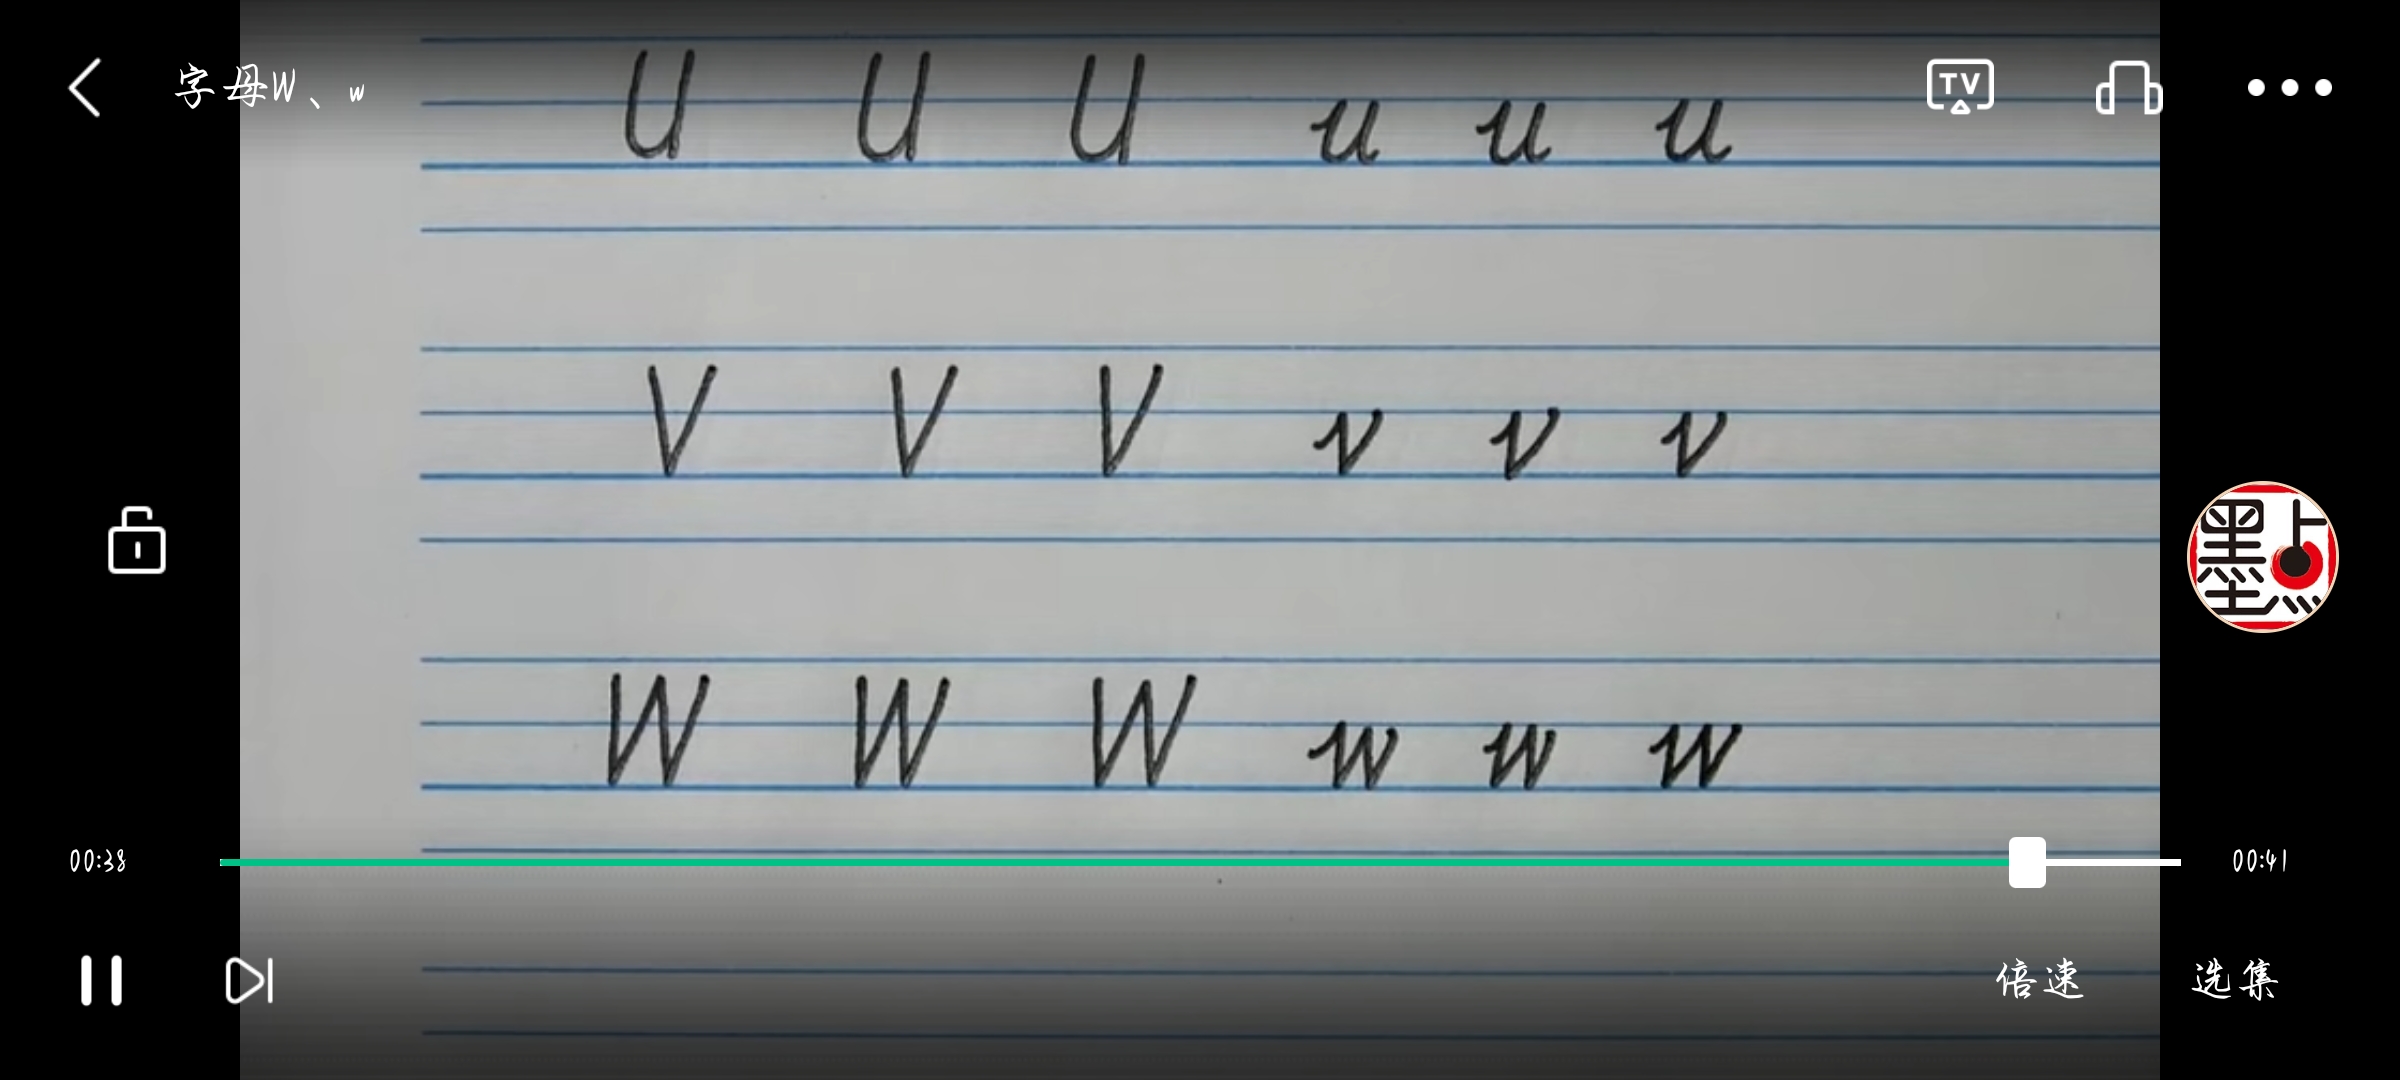 字母W、w
TV
U U U u u u
V V V v v v
墨点
W W W w w w
00:38
00:41
倍速
选集